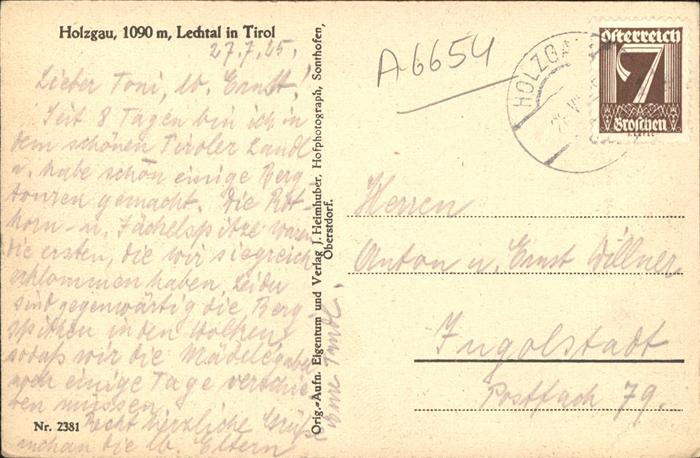 Holzgau, 1090 m, Lechtal in Tirol
27.7.25.
Lieber Toni, lb. Ernst!
Seit 8 Tagen bin ich in
dem schönen Tiroler Landl
u. habe schon einige Berg
touren gemacht. Die Rot-
horn- u. Jöchelspitze waren
die ersten, die wir siegreich
erklommen haben. Leider
sind gegenwärtig die Berg-
spitzen in den Wolken,
sodaß wir die Mädelegabel
noch einige Tage verschie-
ben müssen.
Recht herzliche Grüße
die lb. Eltern
Nr. 2381
Orig.-Aufn. Eigentum und Verlag J. Heimhuber, Hofphotograph, Sonthofen,
Oberstdorf.
A6654
HOLZGAU
Österreich
7
Groschen
Herren
Anton u. Ernst Willner
Ingolstadt
Postfach 79.